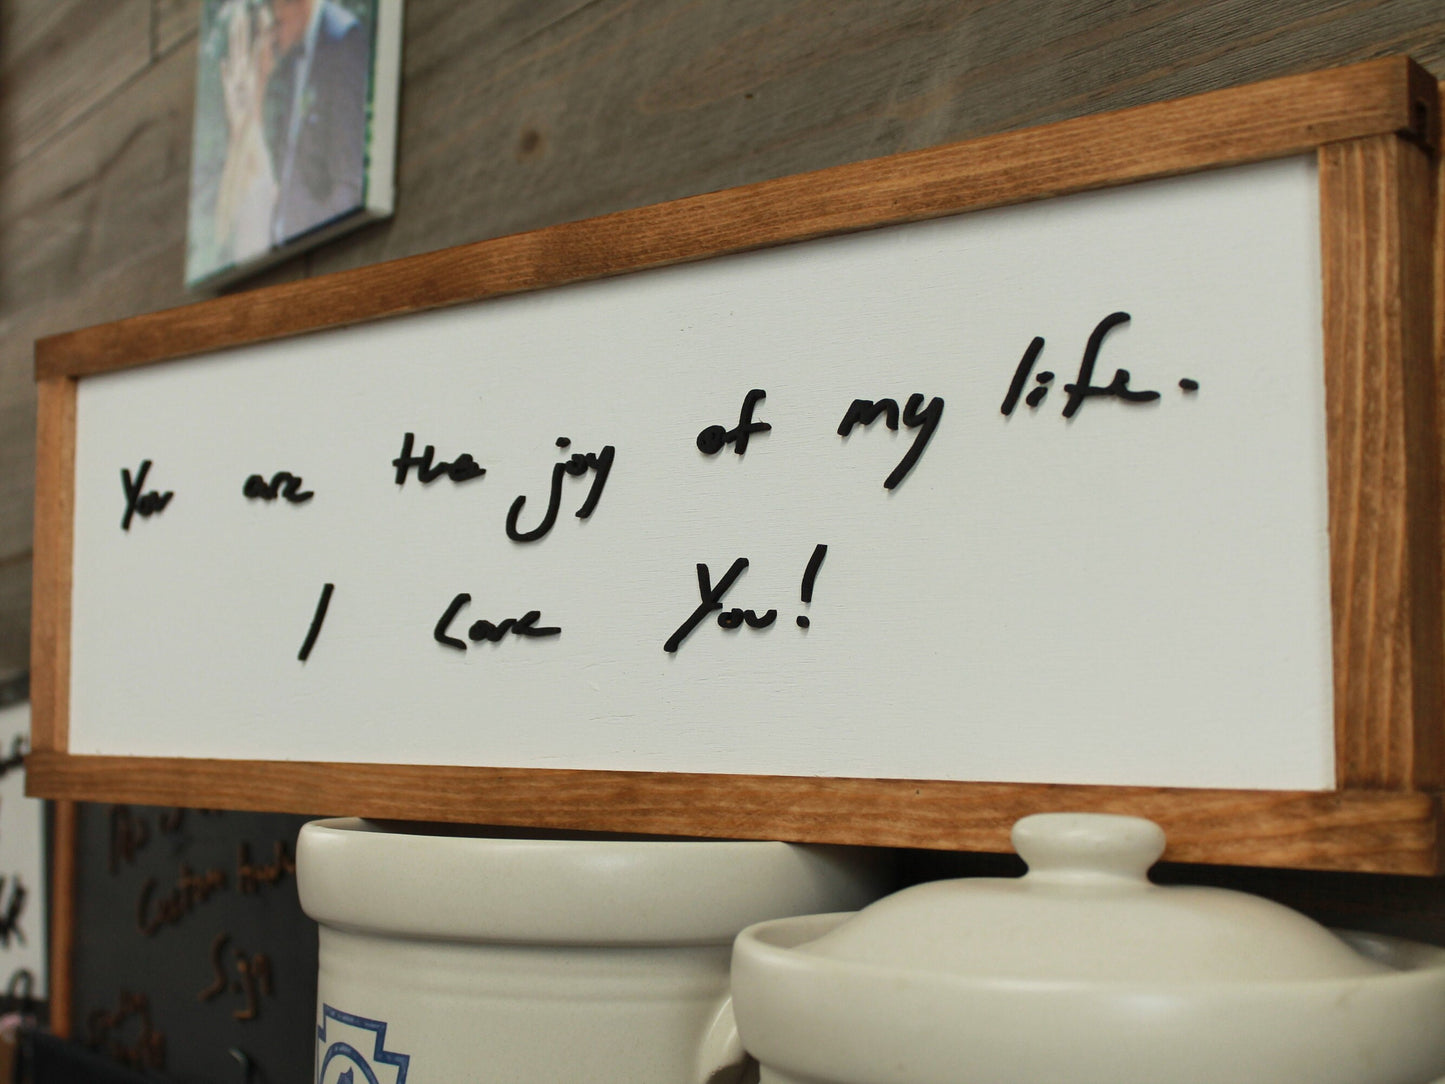 You are the joy of my life.
I Care You!
Custom
Sign